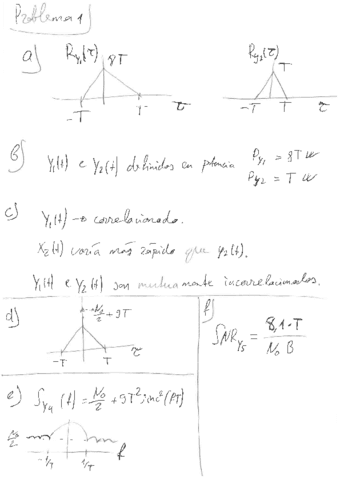 Problema 1
a) Ry₁(τ) 8T Ry₂(τ) T
-T τ -T T τ
b) y₁(t) e y₂(t) definidos en potencia Py₁ = 8T W
Py₂ = T W
c) y₁(t) → correlacionado.
X₂(t) varía más rápido que y₂(t).
y₁(t) e y₂(t) son mutuamente incorrelacionados.
d) N₀/2 + 9T
-T T τ
e) Sy₄(f) = N₀/2 + 9T² sinc²(fT)
N₀/2
-1/T 1/T f
f)
SNRy₅ = 8,1·T / N₀ B